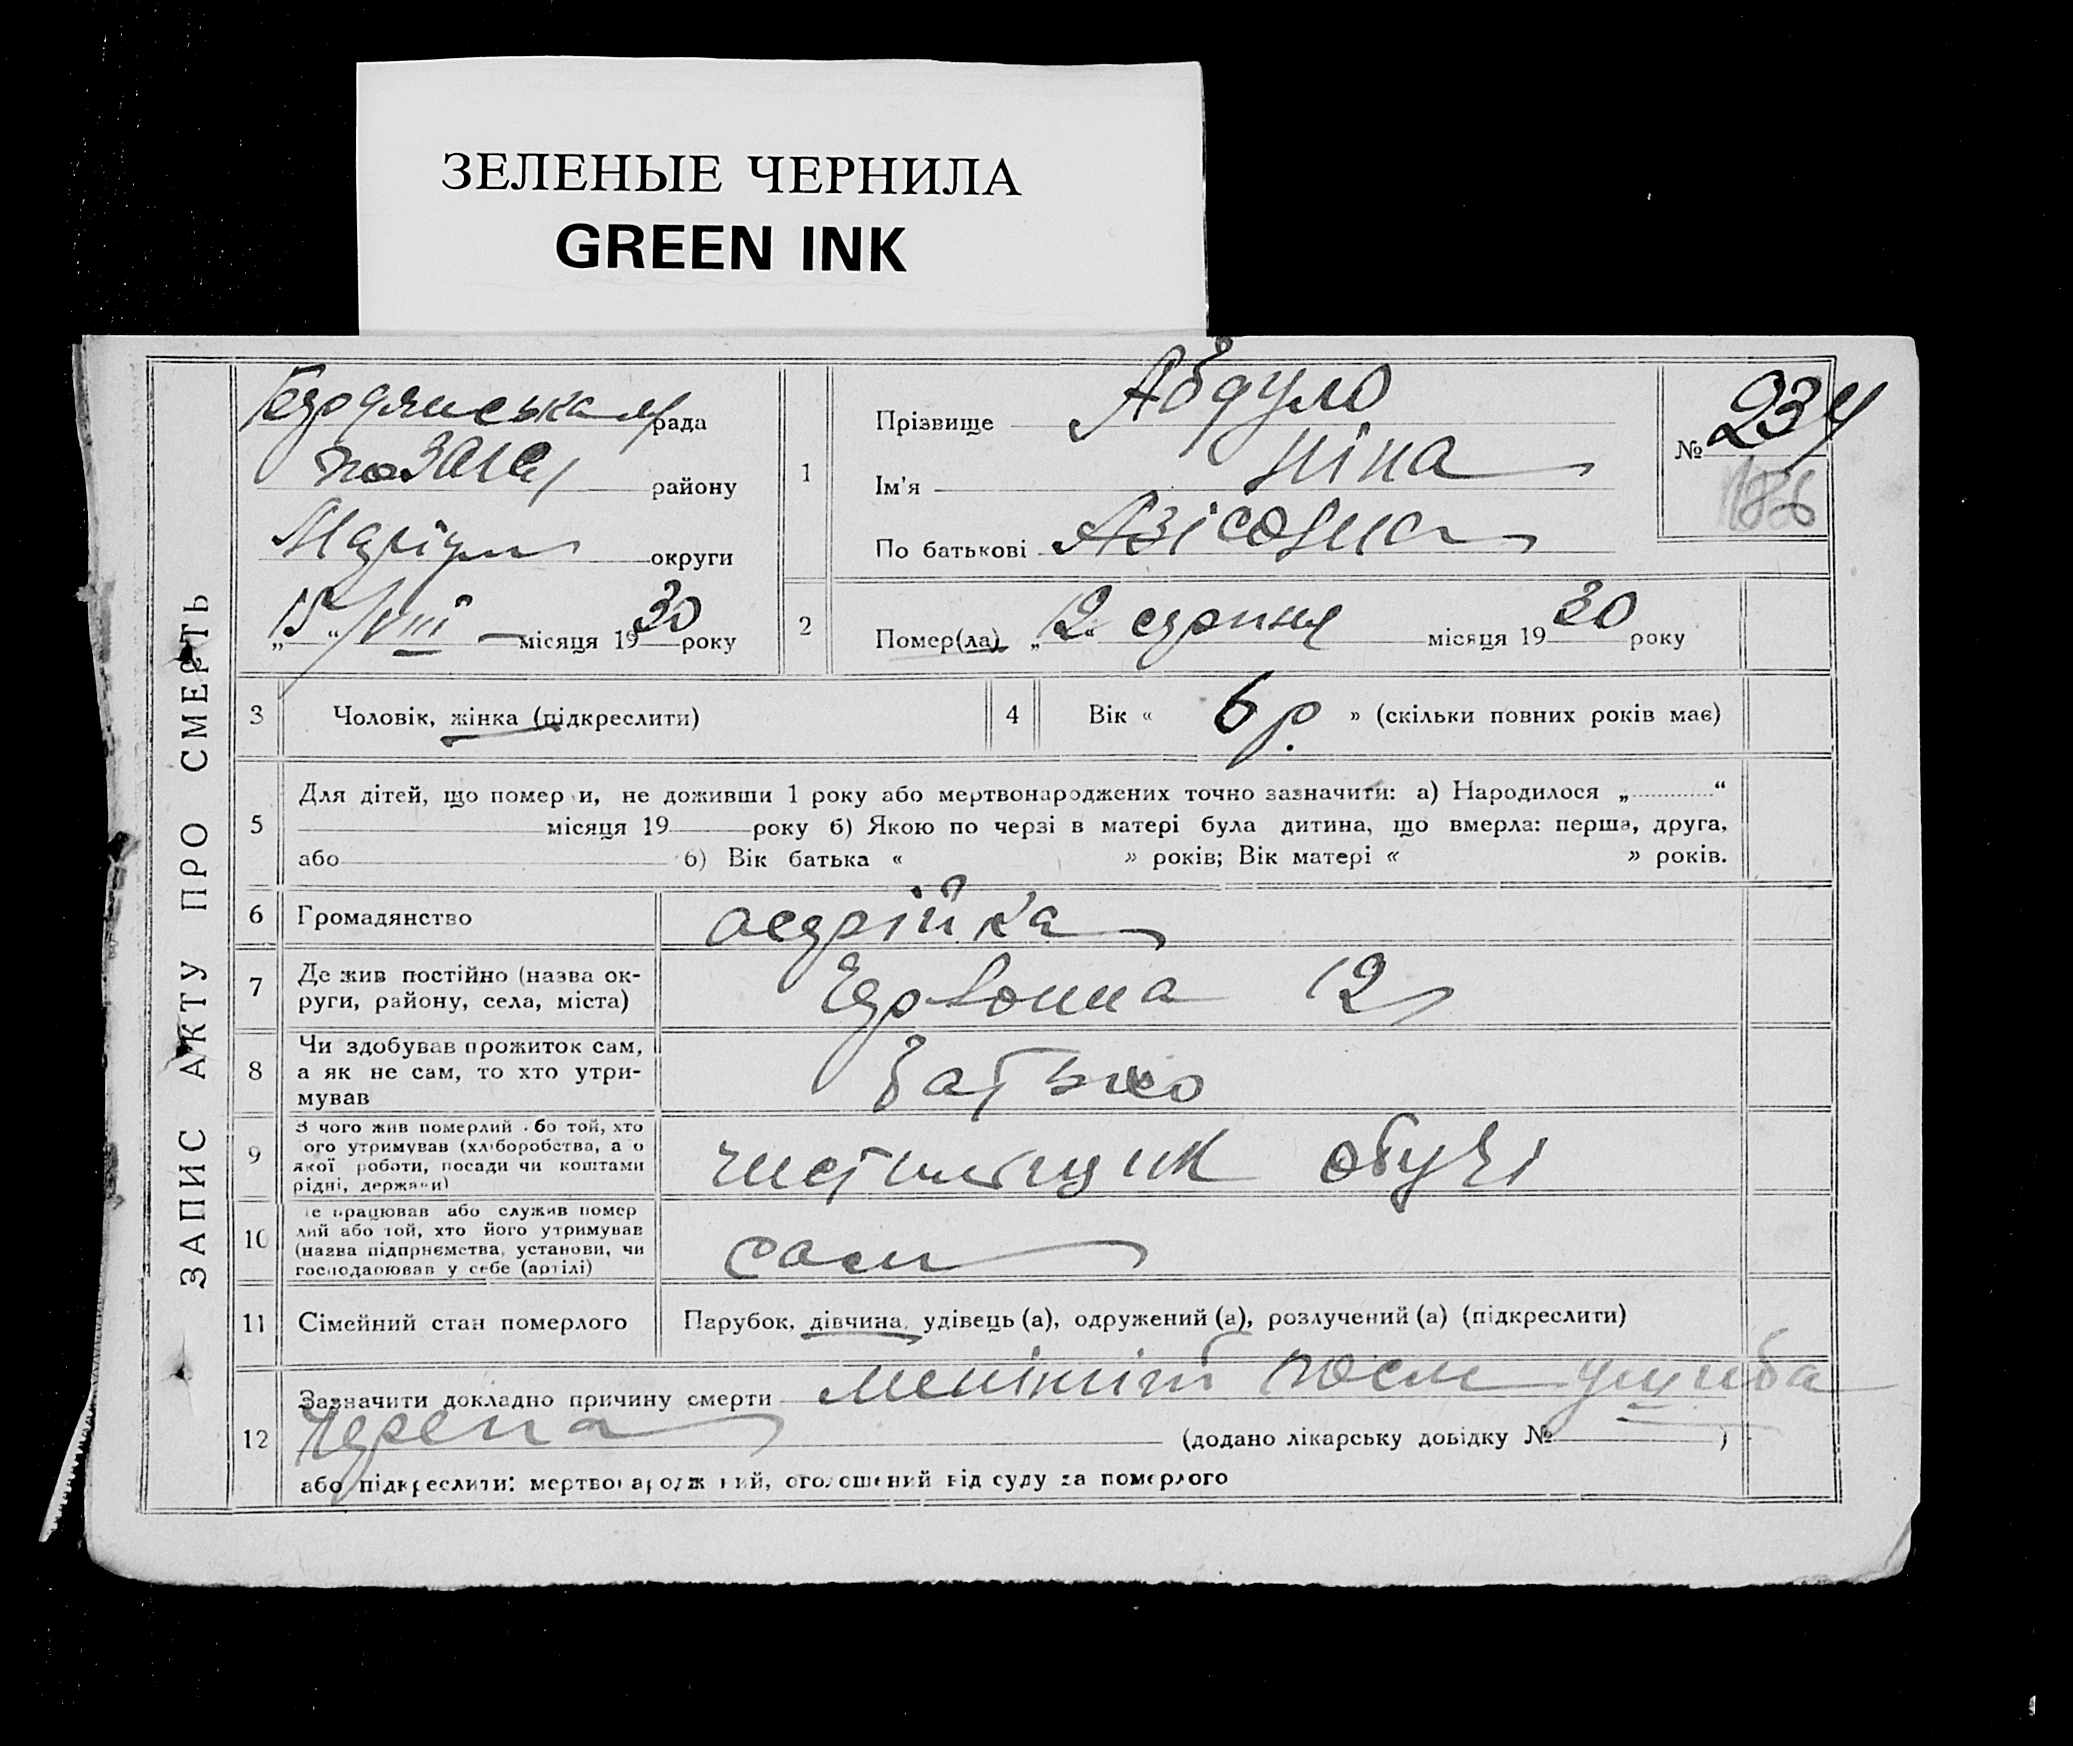 ЗЕЛЕНЫЕ ЧЕРНИЛА
GREEN INK
ЗАПИС АКТУ ПРО СМЕРТЬ
Бердянська м/рада
району
Маріуп округи
„15“ VIII місяця 1930 року
1 Прізвище Абдуло
Ім'я Ніна
По батькові Азісовна
№ 234
186
2 Помер(ла) „12“ серпня місяця 1930 року
3 Чоловік, жінка (підкреслити)
4 Вік « 6 р. » (скільки повних років має)
5 Для дітей, що померли, не доживши 1 року або мертвонароджених точно зазначити: а) Народилося „ “
місяця 19 року б) Якою по черзі в матері була дитина, що вмерла: перша, друга,
або б) Вік батька « » років; Вік матері « » років.
6 Громадянство
7 Де жив постійно (назва ок-
руги, району, села, міста) 12
8 Чи здобував прожиток сам,
а як не сам, то хто утри-
мував батько
9 З чого жив померлий або той, хто
його утримував (хліборобства, або
якої роботи, посади чи коштами
рідні, держави) чистильщик обуві
10 Де працював або служив помер
лий або той, хто його утримував
(назва підприємства, установи, чи
господарював у себе (артілі) сам
11 Сімейний стан померлого Парубок, дівчина, удівець (а), одружений (а), розлучений (а) (підкреслити)
12 Зазначити докладно причину смерти менінгіт посля ушиба
черепа (додано лікарську довідку № )
або підкреслити: мертвонароджений, оголошений від суду за померлого